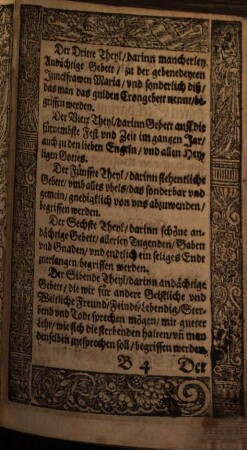 Der Dritte Theyl/darinn mancherley
Andächtige Gebett/zu der gebenedeyten
Junckfrawen Maria/vnd sonderlich diß/
das man das gulden Crongebett nennt/be-
griffen werden.
Der Viert Theyl/darinn Gebett auff die
fürnembste Fest vnd Zeit im gantzen Jar/
auch zu den lieben Engeln/vnd allen Hey-
ligen Gottes.
Der Fünffte Theyl/darinn flehentliche
Gebett/vmb alles vbels/das sonderbar vnd
gemein/gnedigklich von vns abzuwenden/
begriffen werden.
Der Sechste Theyl/darinn schöne an-
dächtige Gebett/allerley Tugenden/Gaben
vnd Gnaden/vnd endtlich ein seliges Ende
zuerlangen begriffen werden.
Der Sibende Theyl/darinn andächtige
Gebett/die wir für andere Geistliche vnd
Weltliche Freund/Feind/Lebendig/Ster-
bend vnd Todt sprechen mögen/mit gueter
Lehr/wie sich die sterbenden halten/vñ man
denselben zusprechen soll/begriffen werden.
B 4 Der